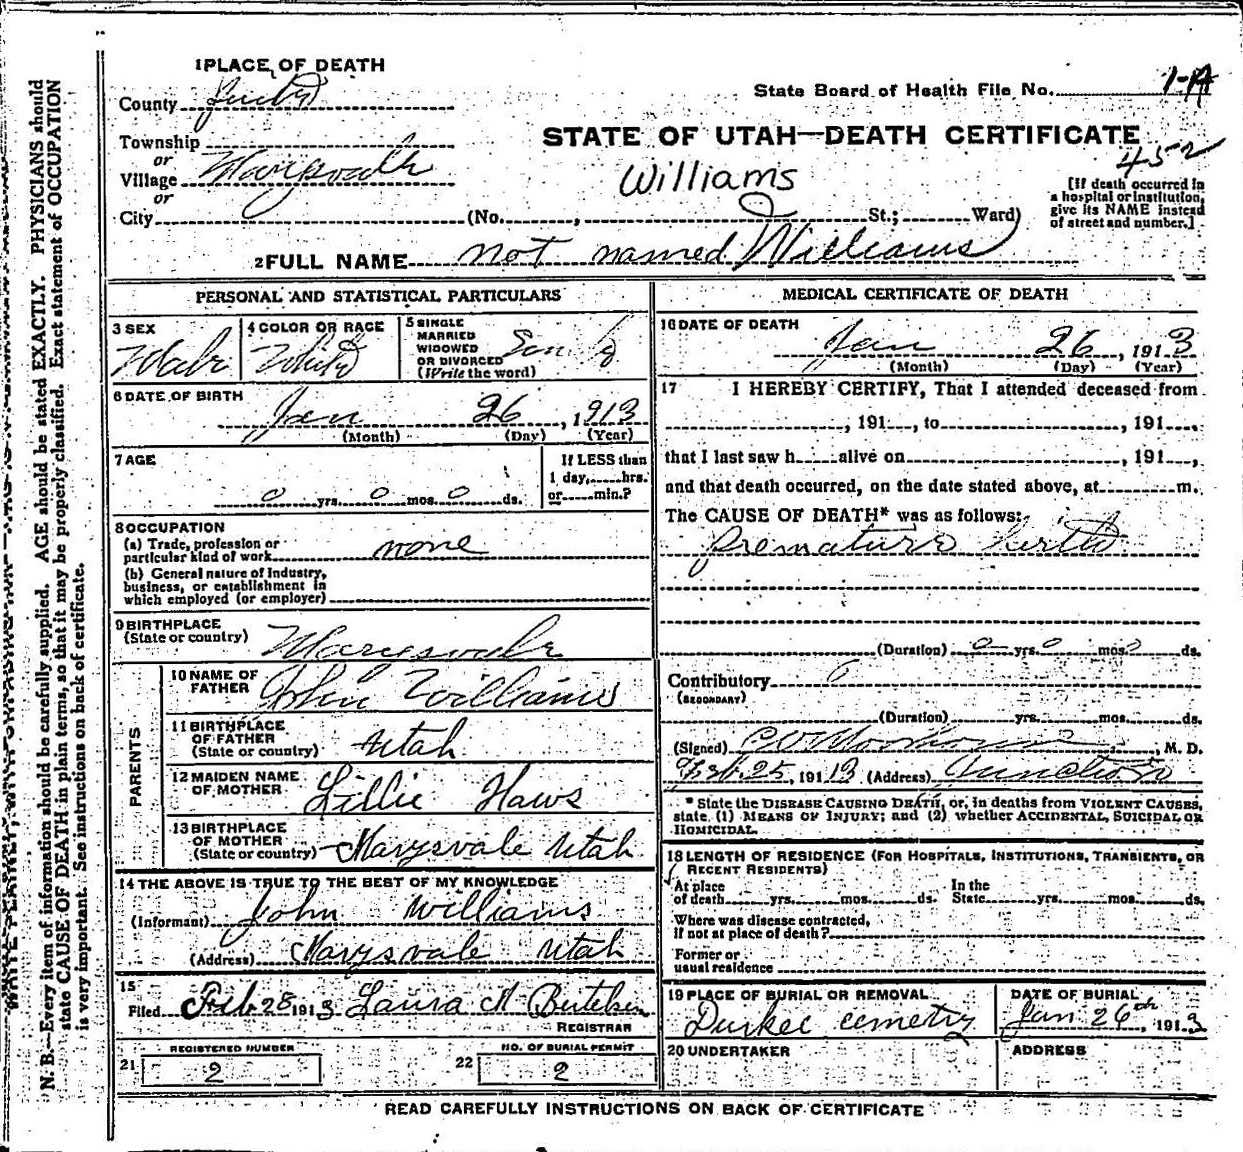 1 PLACE OF DEATH
County
State Board of Health File No. 1-A
STATE OF UTAH—DEATH CERTIFICATE
452
Township
or
Village Marysvale
or
City (No. , St.; Ward)
Williams
[If death occurred in
a hospital or institution,
give its NAME instead
of street and number.]
2 FULL NAME not named Williams
PERSONAL AND STATISTICAL PARTICULARS
3 SEX
Male
4 COLOR OR RACE
White
5 SINGLE
MARRIED
WIDOWED
OR DIVORCED
(Write the word)
6 DATE OF BIRTH
Jan 26, 1913
(Month) (Day) (Year)
7 AGE
0 yrs. 0 mos. 0 ds.
If LESS than
1 day, hrs.
or min.?
8 OCCUPATION
(a) Trade, profession or
particular kind of work none
(b) General nature of Industry,
business, or establishment in
which employed (or employer)
9 BIRTHPLACE
(State or country) Marysvale
PARENTS
10 NAME OF
FATHER John Williams
11 BIRTHPLACE
OF FATHER
(State or country) Utah
12 MAIDEN NAME
OF MOTHER Lillie Haws
13 BIRTHPLACE
OF MOTHER
(State or country) Marysvale Utah
14 THE ABOVE IS TRUE TO THE BEST OF MY KNOWLEDGE
(Informant) John Williams
(Address) Marysvale Utah
15
Filed Feb 28 1913 Laura M
REGISTRAR
REGISTERED NUMBER
21 2
NO. OF BURIAL PERMIT
22 2
MEDICAL CERTIFICATE OF DEATH
16 DATE OF DEATH
Jan 26, 1913
(Month) (Day) (Year)
17 I HEREBY CERTIFY, That I attended deceased from
, 191 , to , 191 ,
that I last saw h alive on , 191 ,
and that death occurred, on the date stated above, at m.
The CAUSE OF DEATH* was as follows:
premature birth
(Duration) 0 yrs. 0 mos. 0 ds.
Contributory
(SECONDARY)
(Duration) yrs. mos. ds.
(Signed) , M. D.
Feb. 25, 1913 (Address) Junction
* State the DISEASE CAUSING DEATH, or, in deaths from VIOLENT CAUSES,
state (1) MEANS OF INJURY; and (2) whether ACCIDENTAL, SUICIDAL OR
HOMICIDAL.
18 LENGTH OF RESIDENCE (FOR HOSPITALS, INSTITUTIONS, TRANSIENTS, OR
RECENT RESIDENTS)
At place
of death yrs. mos. ds.
In the
State yrs. mos. ds.
Where was disease contracted,
if not at place of death?
Former or
usual residence
19 PLACE OF BURIAL OR REMOVAL
Durkee cemetry
DATE OF BURIAL
Jan 26th, 1913
20 UNDERTAKER
ADDRESS
READ CAREFULLY INSTRUCTIONS ON BACK OF CERTIFICATE
N. B.—Every item of information should be carefully supplied. AGE should be stated EXACTLY. PHYSICIANS should
state CAUSE OF DEATH in plain terms, so that it may be properly classified. Exact statement of OCCUPATION
is very important. See instructions on back of certificate.